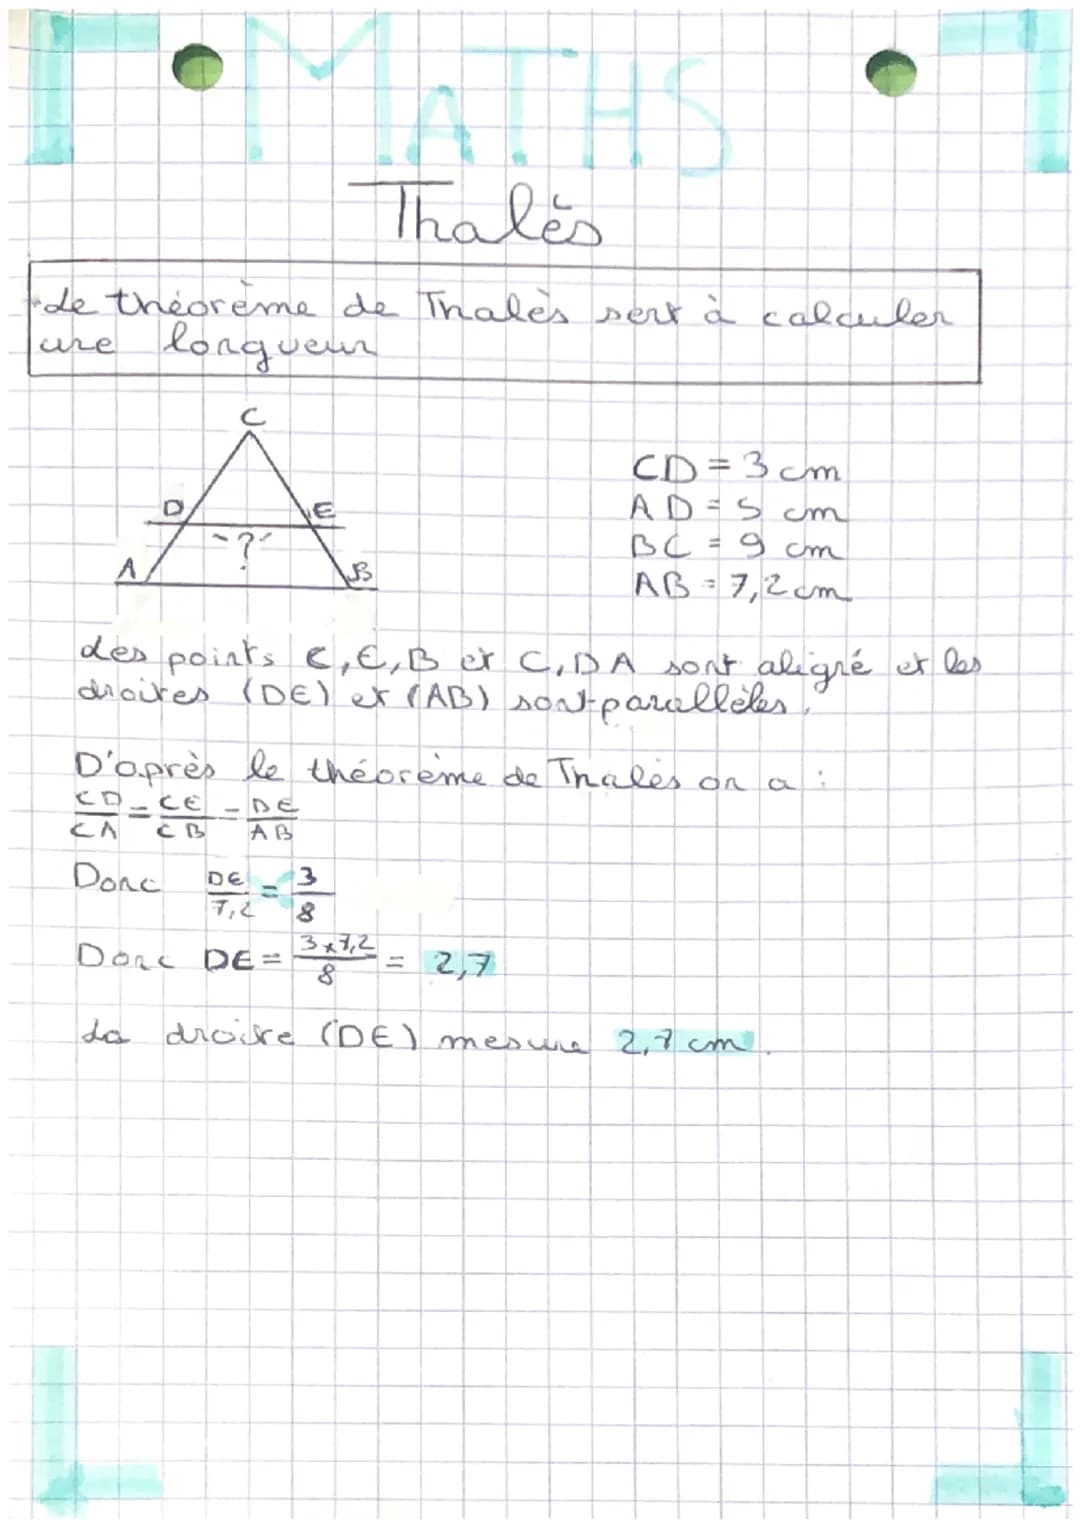 MATHS
Thalès
Le théorème de Thalès sert à calculer
une longueur
C
D E
?
A B
CD = 3 cm
AD = 5 cm
BC = 9 cm
AB = 7,2 cm
Les points C, E, B et C, D A sont aligné et les
droites (DE) et (AB) sont parallèles.
D'après le théorème de Thalès on a :
CD/CA = CE/CB = DE/AB
Donc DE/7,2 = 3/8
Donc DE = 3x7,2/8 = 2,7
La droite (DE) mesure 2,7 cm.